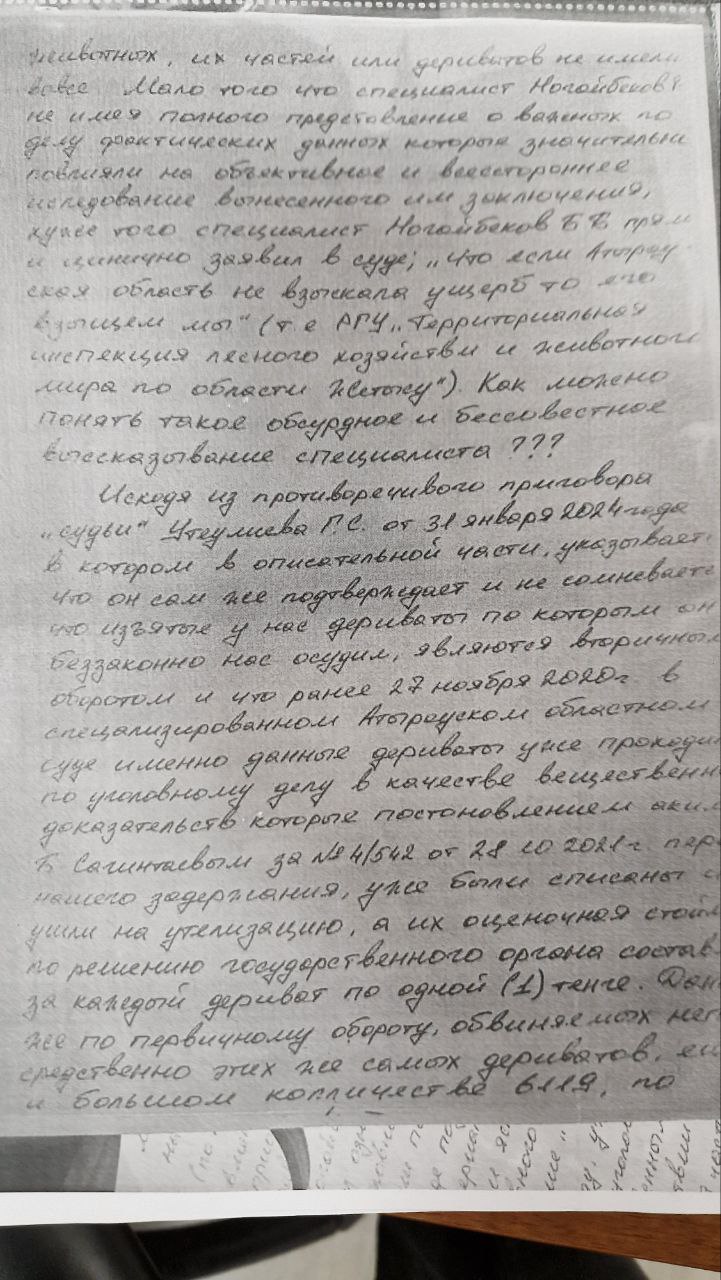 животных, их частей или дериватов не имели
вовсе. Мало того что специалист Ногайбеков Б
не имея полного предстовление о важных по
делу фактических данных которые значительн
повлияли на объективное и всестороннее
иследование вынесенного им заключения,
хуже того специалист Ногайбеков Б Б прям
и цинично заявил в суде; „что если Атырау-
ская область не взыскала ущерб то его
взыщем мы" (т.е РГУ „Территориальная
инспекция лесного хозяйства и животного
мира по области Жетысу"). Как можно
понять такое обсурдное и бессовестное
выссказывание специалиста ???
Исходя из противоречивого приговора
„судьи" Утеулиева Г.С. от 31 января 2024 года
в котором в описательной части, указывает
что он сам же подтверждает и не сомневаетс
что изъятые у нас дериваты по которым он
беззаконно нас осудил, являются вторичным
оборотом и что ранее 27 ноября 2020г. в
спецализированном Атырауском областном
суде именно данные дериваты уже проходи
по уголовному делу в качестве вещественн
доказательств которые постоновлением аким
Б Сагинтаевым за №4/542 от 28 10 2021г. пер
нашего задержания, уже были списаны и
ушли на утелизацию, а их оценочная стойм
по решению государственного органа состав
за каждый дериват по одной (1) тенге. Дан
же по первичному обороту, обвиняемых неп
средственно этих же самых дериватов, ещ
и большом колличестве 6119, по